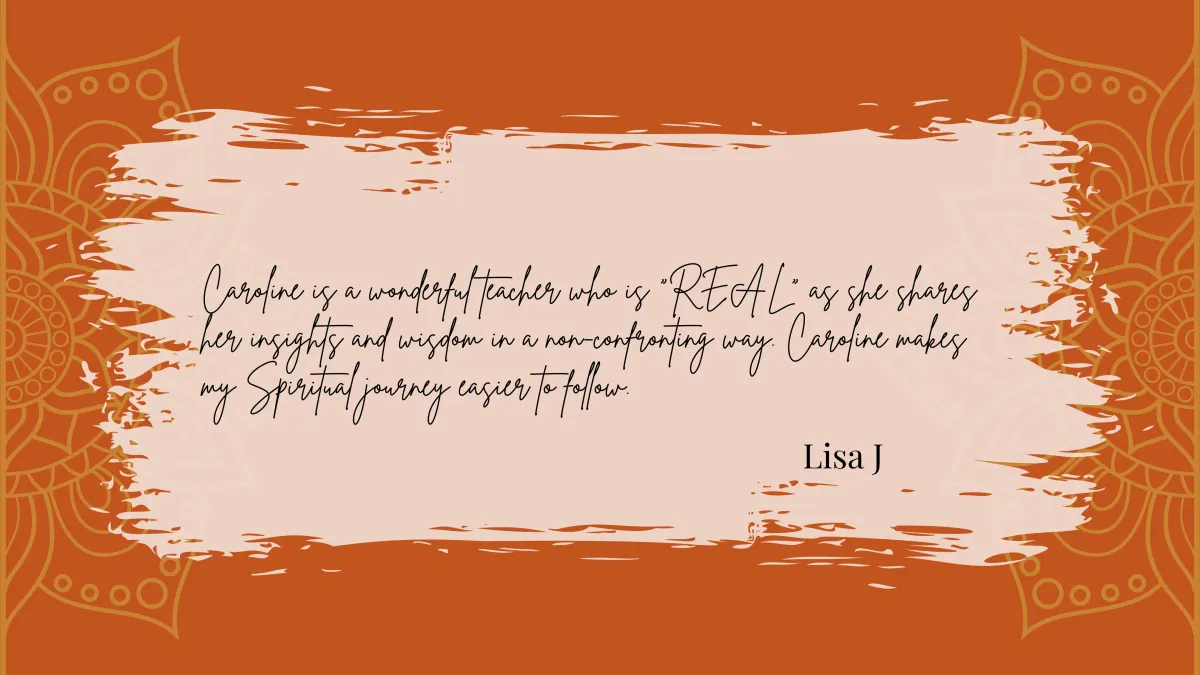 Caroline is a wonderful teacher who is "REAL" as she shares
her insights and wisdom in a non-confronting way. Caroline makes
my Spiritual journey easier to follow.
Lisa J